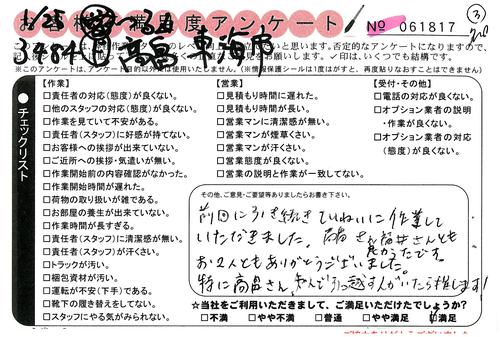 お客様満足度アンケート
No 061817
1/25
3484
高畠 東海市
(※このアンケートは、アンケート目的以外は使用いたしません。)(※情報保護シールは1度はがすと、再度貼りなおすことはできません)
●チェックリスト
【作業】
□責任者の対応(態度)が良くない。
□他のスタッフの対応(態度)が良くない。
□作業を見ていて不安がある。
□責任者(スタッフ)に好感が持てない。
□お客様への挨拶が出来ていない。
□ご近所への挨拶・気遣いが無い。
□作業開始前の内容確認がなかった。
□作業開始時間が遅れた。
□荷物の取り扱いが雑である。
□お部屋の養生が出来ていない。
□作業時間が長すぎる。
□責任者(スタッフ)に清潔感が無い。
□責任者(スタッフ)が汗くさい。
□トラックが汚い。
□梱包資材が汚い。
□運転が不安(下手)である。
□靴下の履き替えをしてない。
□スタッフにやる気がみられない。
【営業】
□見積もり時間に遅れた。
□見積もり時間が長い。
□営業マンに清潔感が無い。
□営業マンが煙草くさい。
□営業マンが汗くさい。
□営業態度が良くない。
□営業の説明と作業が一致してない。
【受付・その他】
□電話の対応が良くない。
□オプション業者の説明
・作業が良くない。
□オプション業者の対応
(態度)が良くない。
その他、ご意見・ご要望等ありましたらお書き下さい。
前回に引き続きていねいに作業して
いただきました。
お2人ともありがとうございました。
☆当社をご利用いただきまして、ご満足いただけたでしょうか?
□不満 □やや不満 □普通 □やや満足 □満足